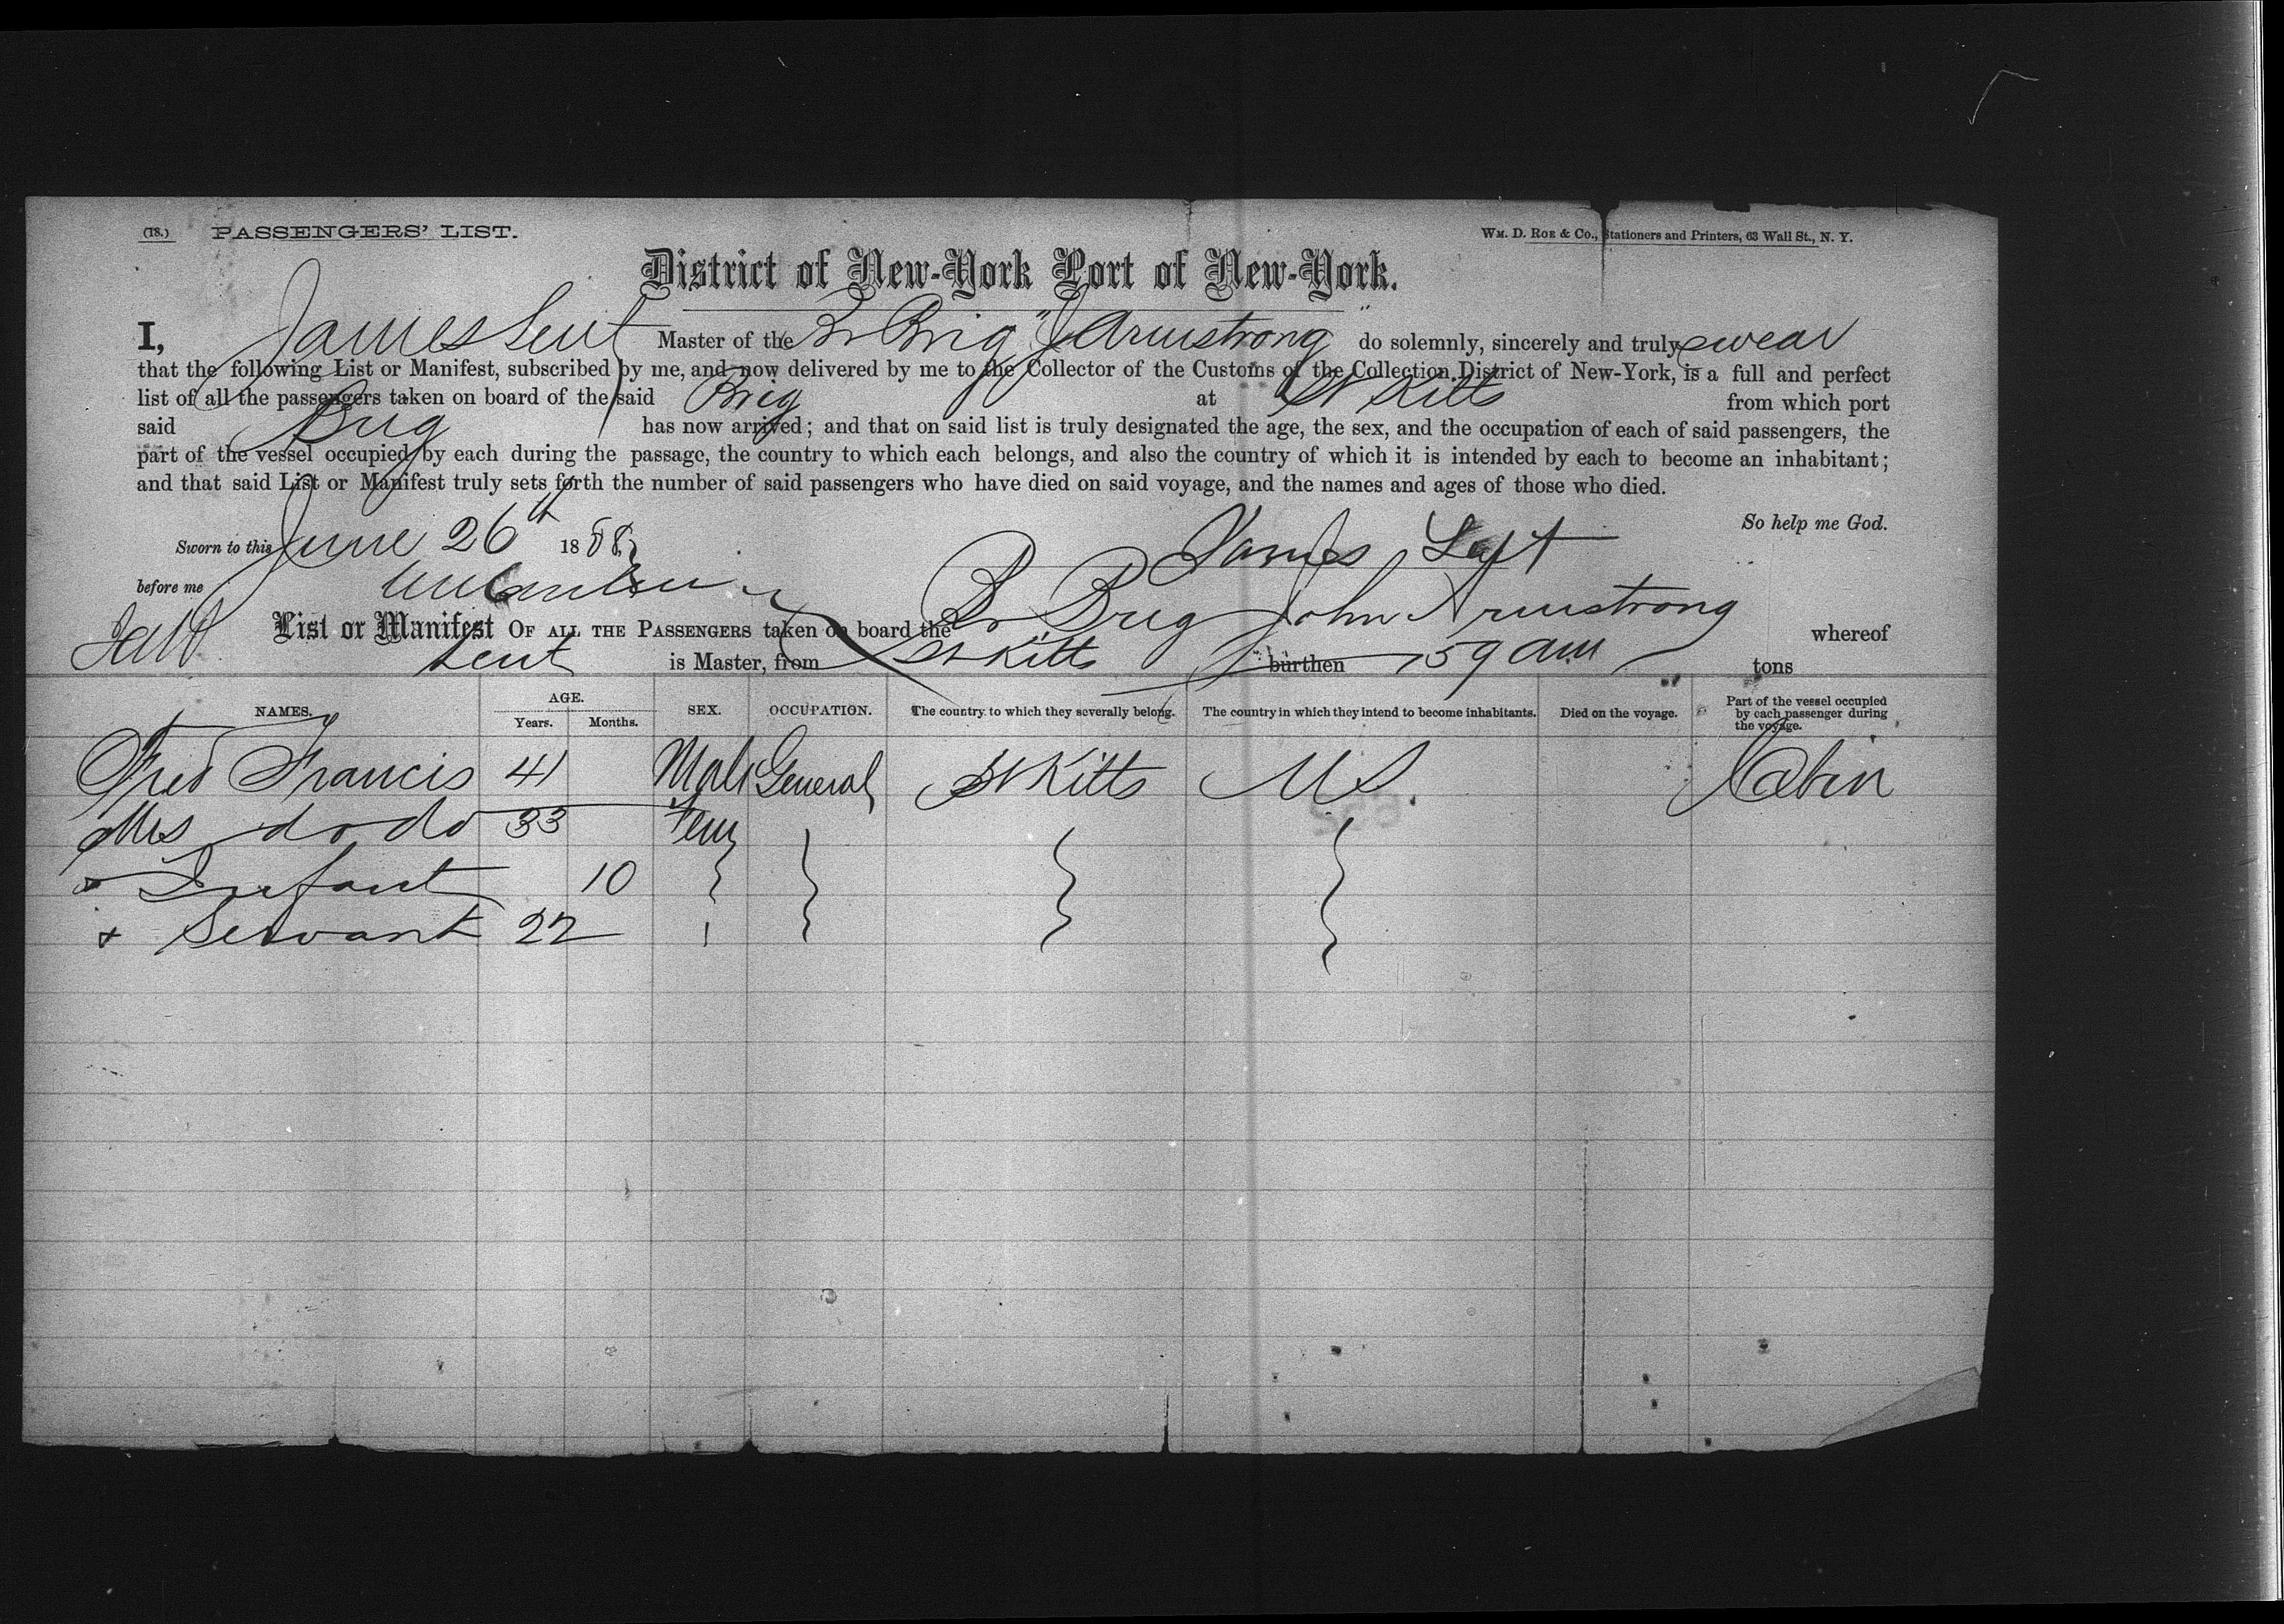 (18.) PASSENGERS' LIST.
WM. D. ROE & CO., Stationers and Printers, 63 Wall St., N. Y.
District of New-York Port of New-York.
I, James Lent Master of the Br Brig "J Armstrong" do solemnly, sincerely and truly swear
that the following List or Manifest, subscribed by me, and now delivered by me to the Collector of the Customs of the Collection District of New-York, is a full and perfect
list of all the passengers taken on board of the said Brig at St Kitts from which port
said Brig has now arrived; and that on said list is truly designated the age, the sex, and the occupation of each of said passengers, the
part of the vessel occupied by each during the passage, the country to which each belongs, and also the country of which it is intended by each to become an inhabitant;
and that said List or Manifest truly sets forth the number of said passengers who have died on said voyage, and the names and ages of those who died.
So help me God.
Sworn to this June 26th 1888 James
before me
List or Manifest OF ALL THE PASSENGERS taken on board the Br Brig John Armstrong whereof
Lent is Master, from St Kitts burthen 159 am tons
NAMES. AGE. Years. Months. SEX. OCCUPATION. The country to which they severally belong. The country in which they intend to become inhabitants. Died on the voyage. Part of the vessel occupied by each passenger during the voyage.
Fred Francis 41 Male General St Kitts US. Cabin
Mrs do do 33 Fem
" Infant 10
+ Servant 22